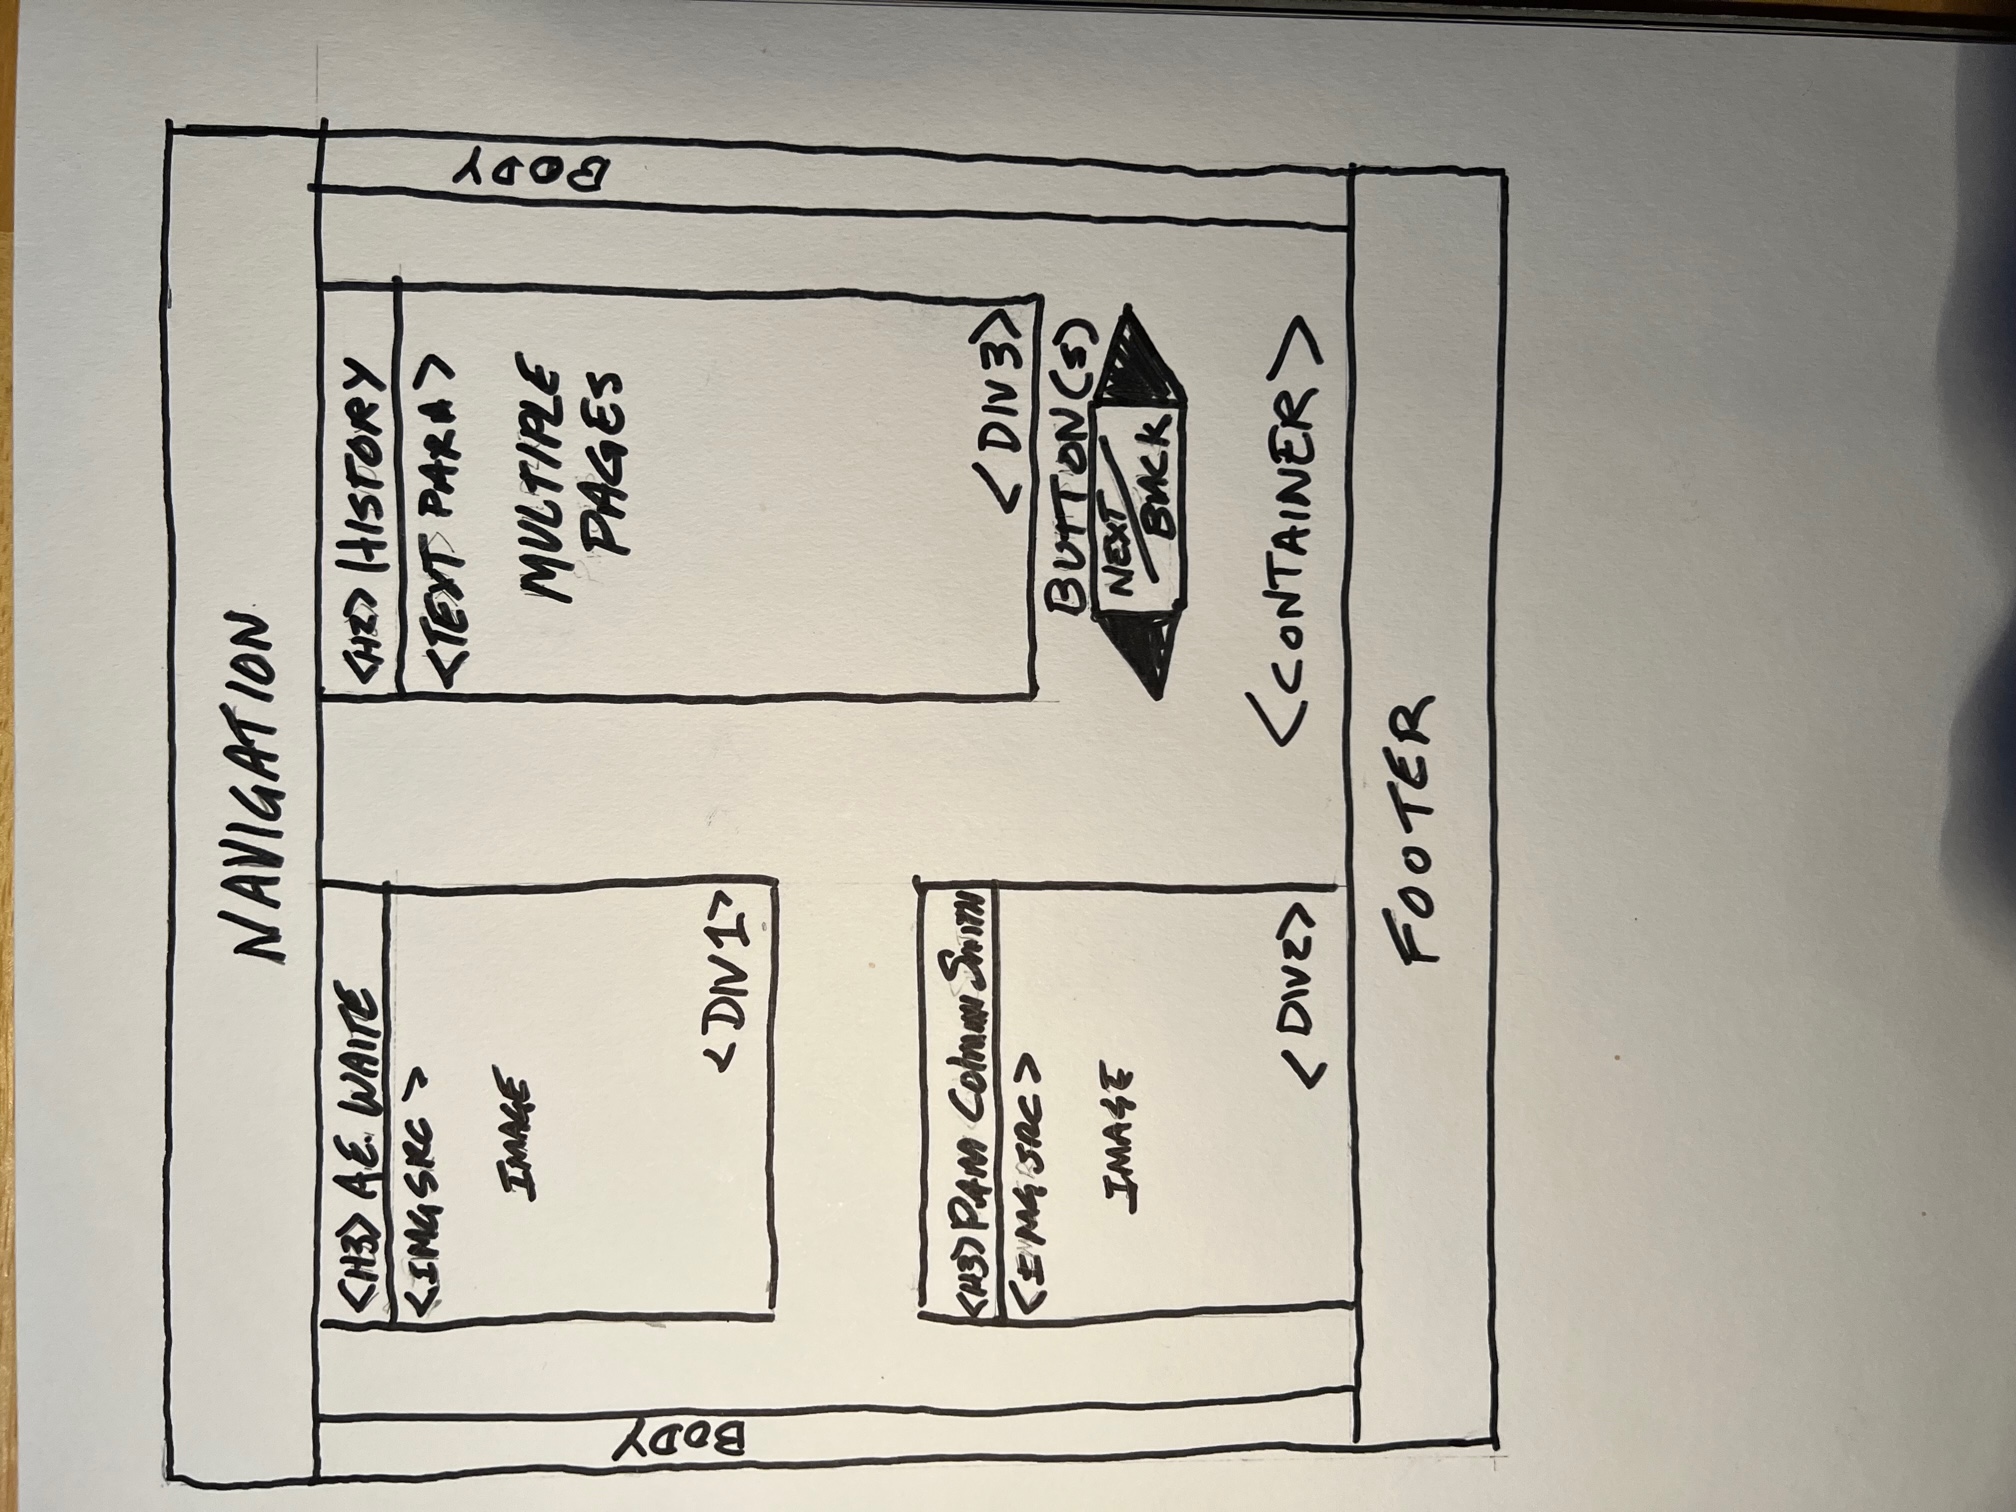 NAVIGATION
<H3> A.E. WAITE
<IMG SRC >
IMAGE
<DIV 1>
BODY
<H3> PAM COLMAN SMITH
<IMG SRC>
IMAGE
<DIV2>
<H2> HISTORY
<TEXT PARA>
MULTIPLE
PAGES
<DIV 3>
BUTTON(S)
NEXT/
BACK
<CONTAINER>
BODY
FOOTER